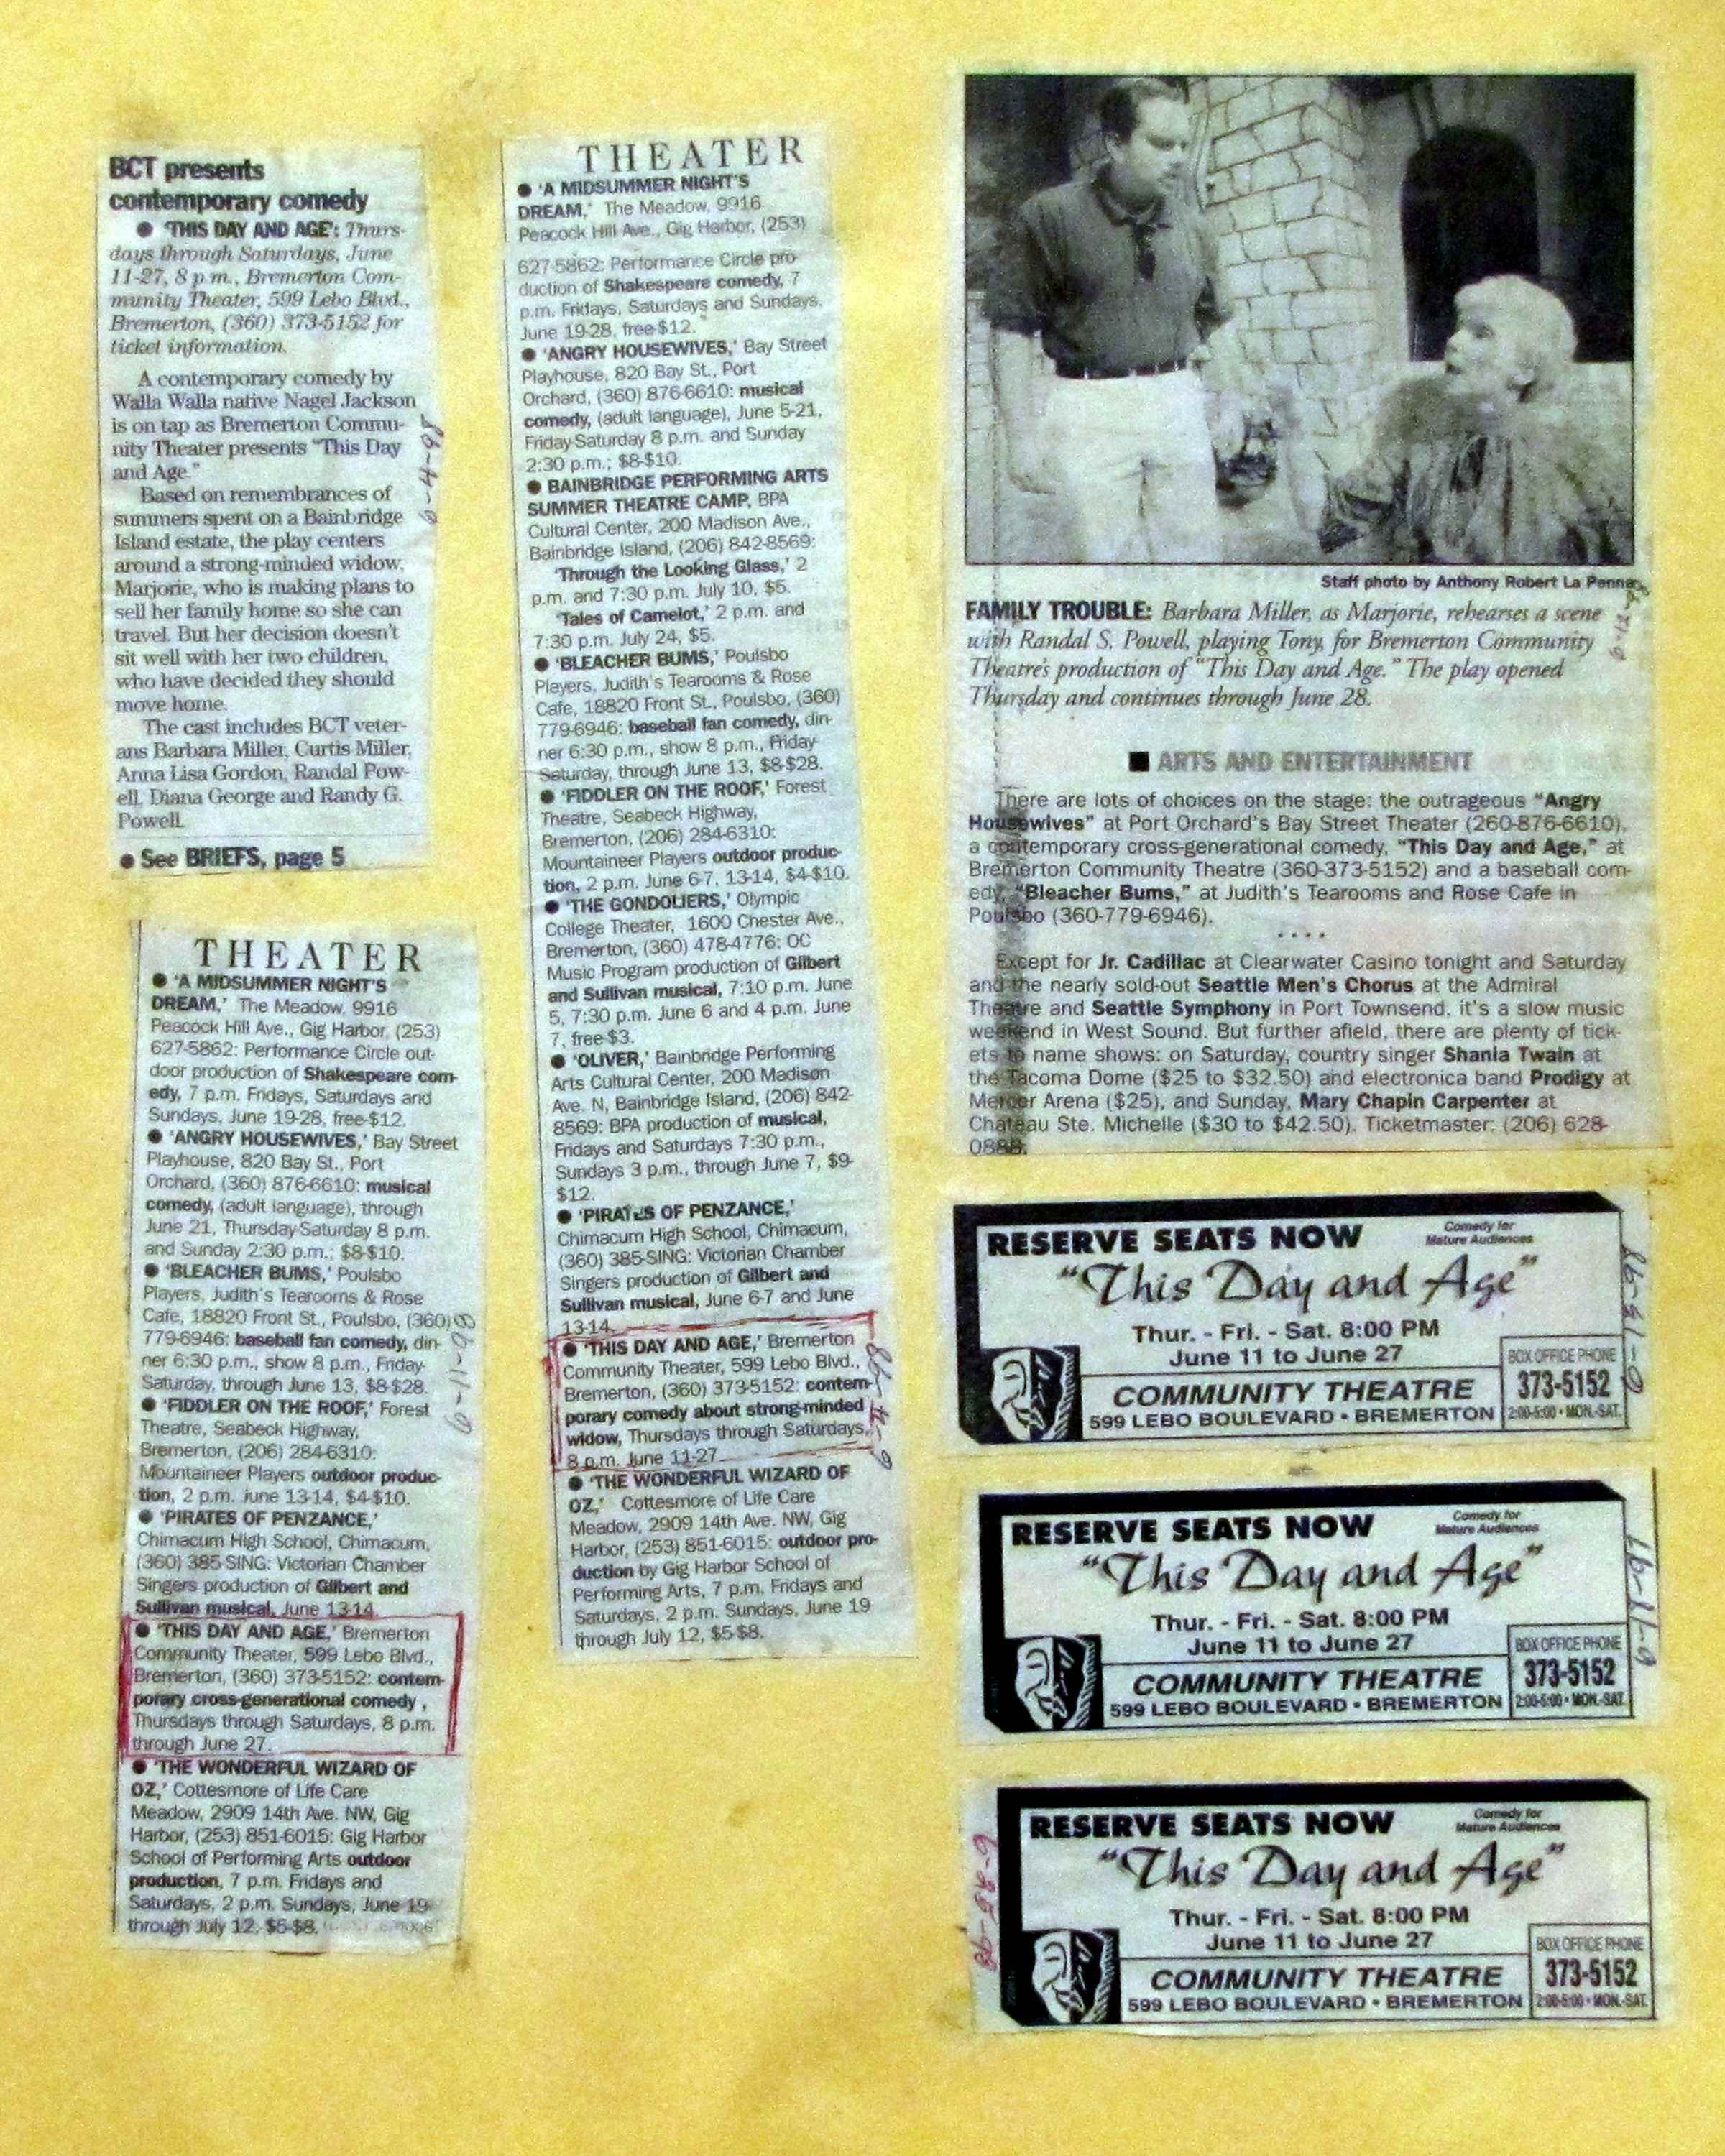 BCT presents
contemporary comedy
● 'THIS DAY AND AGE': Thurs-
days through Saturdays, June
11-27, 8 p.m., Bremerton Com-
munity Theater, 599 Lebo Blvd.,
Bremerton, (360) 373-5152 for
ticket information.
A contemporary comedy by
Walla Walla native Nagel Jackson
is on tap as Bremerton Commu-
nity Theater presents "This Day
and Age."
Based on remembrances of
summers spent on a Bainbridge
Island estate, the play centers
around a strong-minded widow,
Marjorie, who is making plans to
sell her family home so she can
travel. But her decision doesn't
sit well with her two children,
who have decided they should
move home.
The cast includes BCT veter-
ans Barbara Miller, Curtis Miller,
Anna Lisa Gordon, Randal Pow-
ell, Diana George and Randy G.
Powell.
● See BRIEFS, page 5
6-4-98
THEATER
● 'A MIDSUMMER NIGHT'S
DREAM,' The Meadow, 9916
Peacock Hill Ave., Gig Harbor, (253)
627-5862: Performance Circle out-
door production of Shakespeare com-
edy, 7 p.m. Fridays, Saturdays and
Sundays, June 19-28, free-$12.
● 'ANGRY HOUSEWIVES,' Bay Street
Playhouse, 820 Bay St., Port
Orchard, (360) 876-6610: musical
comedy, (adult language), through
June 21, Thursday-Saturday 8 p.m.
and Sunday 2:30 p.m.; $8-$10.
● 'BLEACHER BUMS,' Poulsbo
Players, Judith's Tearooms & Rose
Cafe, 18820 Front St., Poulsbo, (360)
779-6946: baseball fan comedy, din-
ner 6:30 p.m., show 8 p.m., Friday-
Saturday, through June 13, $8-$28.
● 'FIDDLER ON THE ROOF,' Forest
Theatre, Seabeck Highway,
Bremerton, (206) 284-6310:
Mountaineer Players outdoor produc-
tion, 2 p.m. June 13-14, $4-$10.
● 'PIRATES OF PENZANCE,'
Chimacum High School, Chimacum,
(360) 385-SING: Victorian Chamber
Singers production of Gilbert and
Sullivan musical, June 13-14.
● 'THIS DAY AND AGE,' Bremerton
Community Theater, 599 Lebo Blvd.,
Bremerton, (360) 373-5152: contem-
porary cross-generational comedy ,
Thursdays through Saturdays, 8 p.m.
through June 27.
● 'THE WONDERFUL WIZARD OF
OZ,' Cottesmore of Life Care
Meadow, 2909 14th Ave. NW, Gig
Harbor, (253) 851-6015: Gig Harbor
School of Performing Arts outdoor
production, 7 p.m. Fridays and
Saturdays, 2 p.m. Sundays, June 19
through July 12, $5-$8.
6-11-98
THEATER
● 'A MIDSUMMER NIGHT'S
DREAM,' The Meadow, 9916
Peacock Hill Ave., Gig Harbor, (253)
627-5862: Performance Circle pro-
duction of Shakespeare comedy, 7
p.m. Fridays, Saturdays and Sundays,
June 19-28, free-$12.
● 'ANGRY HOUSEWIVES,' Bay Street
Playhouse, 820 Bay St., Port
Orchard, (360) 876-6610: musical
comedy, (adult language), June 5-21,
Friday-Saturday 8 p.m. and Sunday
2:30 p.m.; $8-$10.
● BAINBRIDGE PERFORMING ARTS
SUMMER THEATRE CAMP, BPA
Cultural Center, 200 Madison Ave.,
Bainbridge Island, (206) 842-8569:
'Through the Looking Glass,' 2
p.m. and 7:30 p.m. July 10, $5.
'Tales of Camelot,' 2 p.m. and
7:30 p.m. July 24, $5.
● 'BLEACHER BUMS,' Poulsbo
Players, Judith's Tearooms & Rose
Cafe, 18820 Front St., Poulsbo, (360)
779-6946: baseball fan comedy, din-
ner 6:30 p.m., show 8 p.m., Friday-
Saturday, through June 13, $8-$28.
● 'FIDDLER ON THE ROOF,' Forest
Theatre, Seabeck Highway,
Bremerton, (206) 284-6310:
Mountaineer Players outdoor produc-
tion, 2 p.m. June 6-7, 13-14, $4-$10.
● 'THE GONDOLIERS,' Olympic
College Theater, 1600 Chester Ave.,
Bremerton, (360) 478-4776: OC
Music Program production of Gilbert
and Sullivan musical, 7:10 p.m. June
5, 7:30 p.m. June 6 and 4 p.m. June
7, free-$3.
● 'OLIVER,' Bainbridge Performing
Arts Cultural Center, 200 Madison
Ave. N, Bainbridge Island, (206) 842-
8569: BPA production of musical,
Fridays and Saturdays 7:30 p.m.,
Sundays 3 p.m., through June 7, $9-
$12.
● 'PIRATES OF PENZANCE,'
Chimacum High School, Chimacum,
(360) 385-SING: Victorian Chamber
Singers production of Gilbert and
Sullivan musical, June 6-7 and June
13-14.
● 'THIS DAY AND AGE,' Bremerton
Community Theater, 599 Lebo Blvd.,
Bremerton, (360) 373-5152: contem-
porary comedy about strong-minded
widow, Thursdays through Saturdays,
8 p.m. June 11-27.
● 'THE WONDERFUL WIZARD OF
OZ,' Cottesmore of Life Care
Meadow, 2909 14th Ave. NW, Gig
Harbor, (253) 851-6015: outdoor pro-
duction by Gig Harbor School of
Performing Arts, 7 p.m. Fridays and
Saturdays, 2 p.m. Sundays, June 19
through July 12, $5-$8.
6-4-98
Staff photo by Anthony Robert La Penna
FAMILY TROUBLE: Barbara Miller, as Marjorie, rehearses a scene
with Randal S. Powell, playing Tony, for Bremerton Community
Theatre's production of "This Day and Age." The play opened
Thursday and continues through June 28.
■ ARTS AND ENTERTAINMENT
There are lots of choices on the stage: the outrageous "Angry
Housewives" at Port Orchard's Bay Street Theater (260-876-6610),
a contemporary cross-generational comedy, "This Day and Age," at
Bremerton Community Theatre (360-373-5152) and a baseball com-
edy, "Bleacher Bums," at Judith's Tearooms and Rose Cafe in
Poulsbo (360-779-6946).
. . . .
Except for Jr. Cadillac at Clearwater Casino tonight and Saturday
and the nearly sold-out Seattle Men's Chorus at the Admiral
Theatre and Seattle Symphony in Port Townsend, it's a slow music
weekend in West Sound. But further afield, there are plenty of tick-
ets to name shows: on Saturday, country singer Shania Twain at
the Tacoma Dome ($25 to $32.50) and electronica band Prodigy at
Mercer Arena ($25), and Sunday, Mary Chapin Carpenter at
Chateau Ste. Michelle ($30 to $42.50). Ticketmaster: (206) 628-
0888.
RESERVE SEATS NOW
Comedy for
Mature Audiences
"This Day and Age"
Thur. - Fri. - Sat. 8:00 PM
June 11 to June 27
COMMUNITY THEATRE
599 LEBO BOULEVARD • BREMERTON
BOX OFFICE PHONE
373-5152
2:00-5:00 • MON.-SAT.
RESERVE SEATS NOW
Comedy for
Mature Audiences
"This Day and Age"
Thur. - Fri. - Sat. 8:00 PM
June 11 to June 27
COMMUNITY THEATRE
599 LEBO BOULEVARD • BREMERTON
BOX OFFICE PHONE
373-5152
2:00-5:00 • MON.-SAT.
RESERVE SEATS NOW
Comedy for
Mature Audiences
"This Day and Age"
Thur. - Fri. - Sat. 8:00 PM
June 11 to June 27
COMMUNITY THEATRE
599 LEBO BOULEVARD • BREMERTON
BOX OFFICE PHONE
373-5152
2:00-5:00 • MON.-SAT.